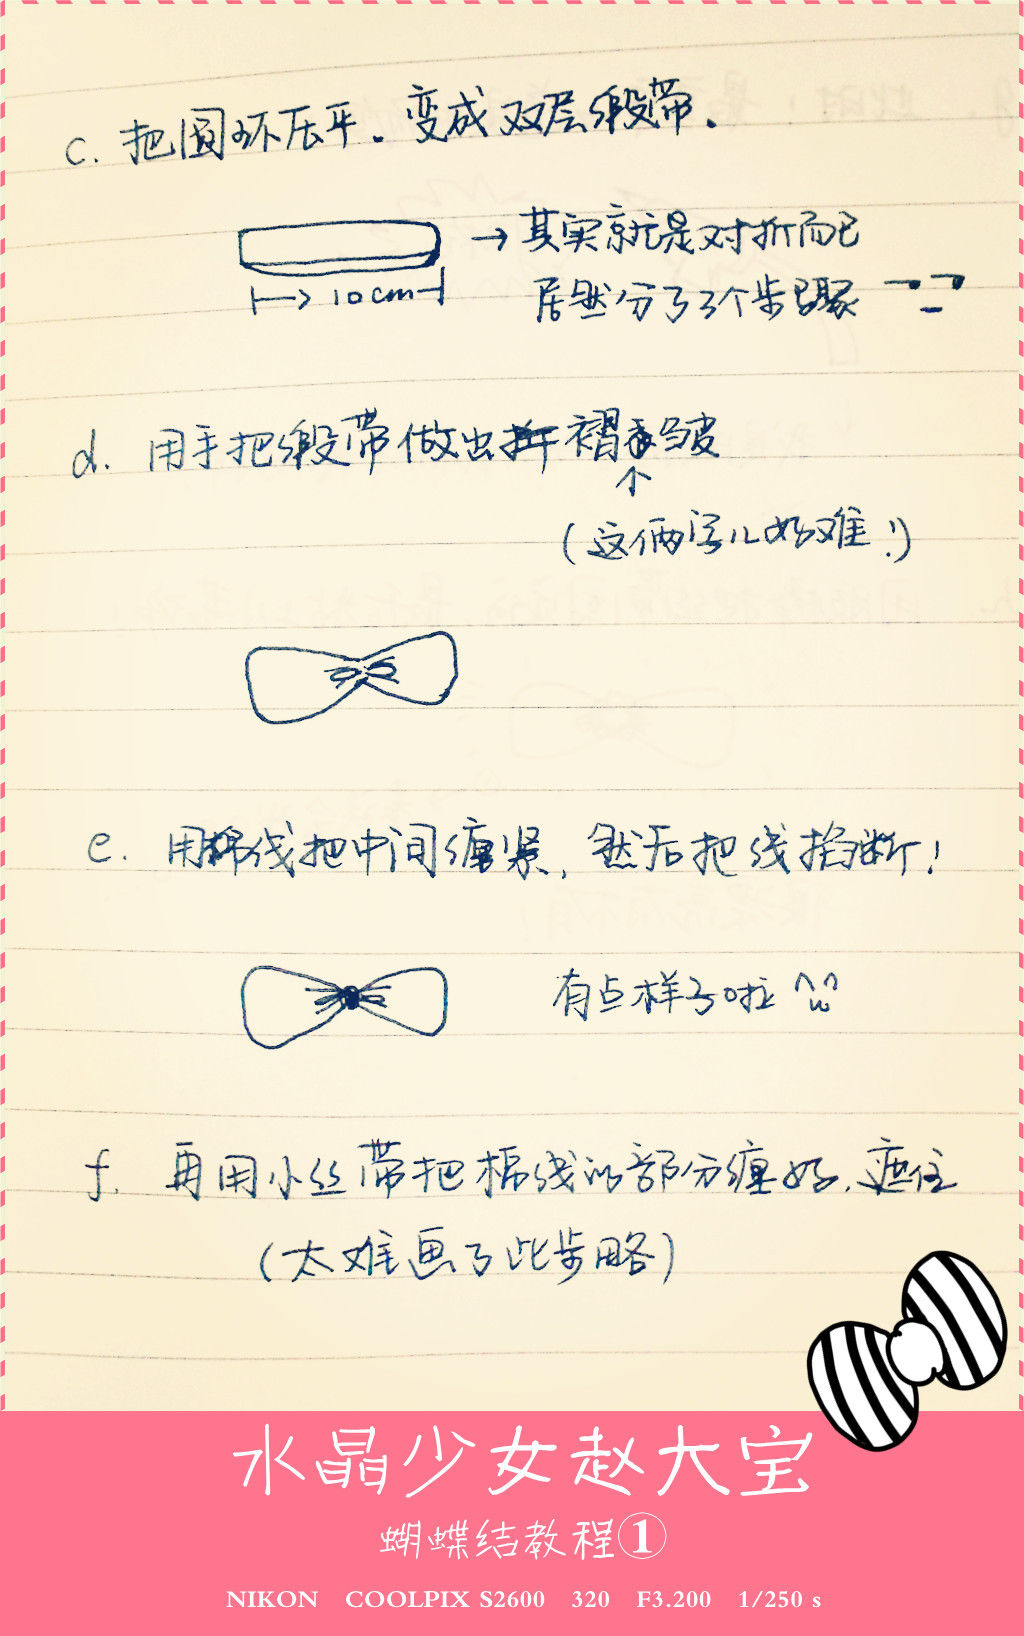 c. 把圆环压平。变成双层缎带.
→其实就是对折而已
居然分了3个步骤
10cm
d. 用手把缎带做出褶皱
(这俩字儿好难!)
e. 用棉线把中间缠紧, 然后把线掐断!
有点样子啦 ^w^
f. 再用小丝带把棉线的部分缠好.遮住
(太难画了此步略)
水晶少女赵大宝
蝴蝶结教程①
NIKON COOLPIX S2600 320 F3.200 1/250 s